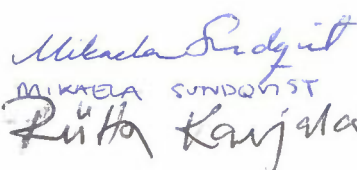 Mikaela Sundqvist
MIKAELA SUNDQVIST
Riitta Karjala